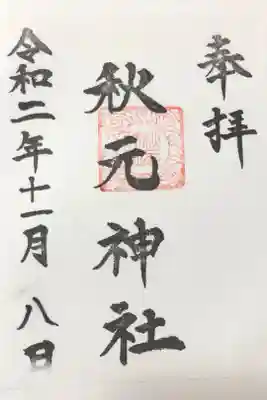 奉拝
秋元神社
令和二年十一月八日